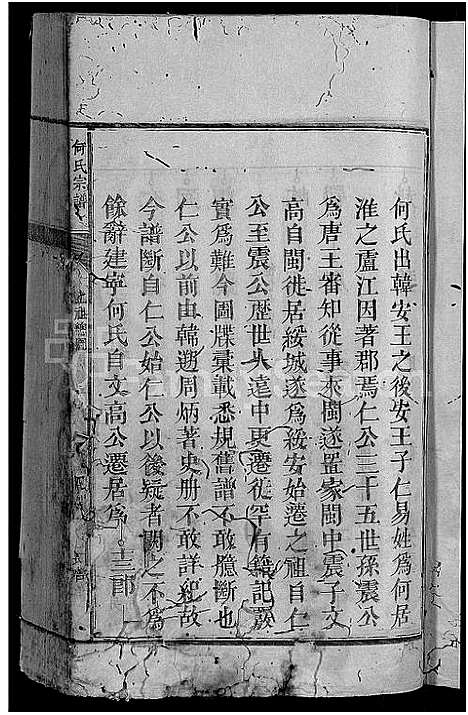 何氏出韓安王之後安王子仁易姓為何居
淮之廬江因著郡焉仁公三十五世孫震公
為唐王審知從事來閩遂置家閩中震子文
高自閩徙居綏城遂為綏安始遷之祖自仁
公至震公歷世久遠中更遷徙罕有籍記蕝
實為難今圖牒彙載悉規舊譜不敢臆斷也
仁公以前由韓遡周炳著史册不敢詳紀故
今譜斷自仁公始仁公以後疑者闕之不為
餘辭建寧何氏自文高公遷居為三郎
何氏宗譜